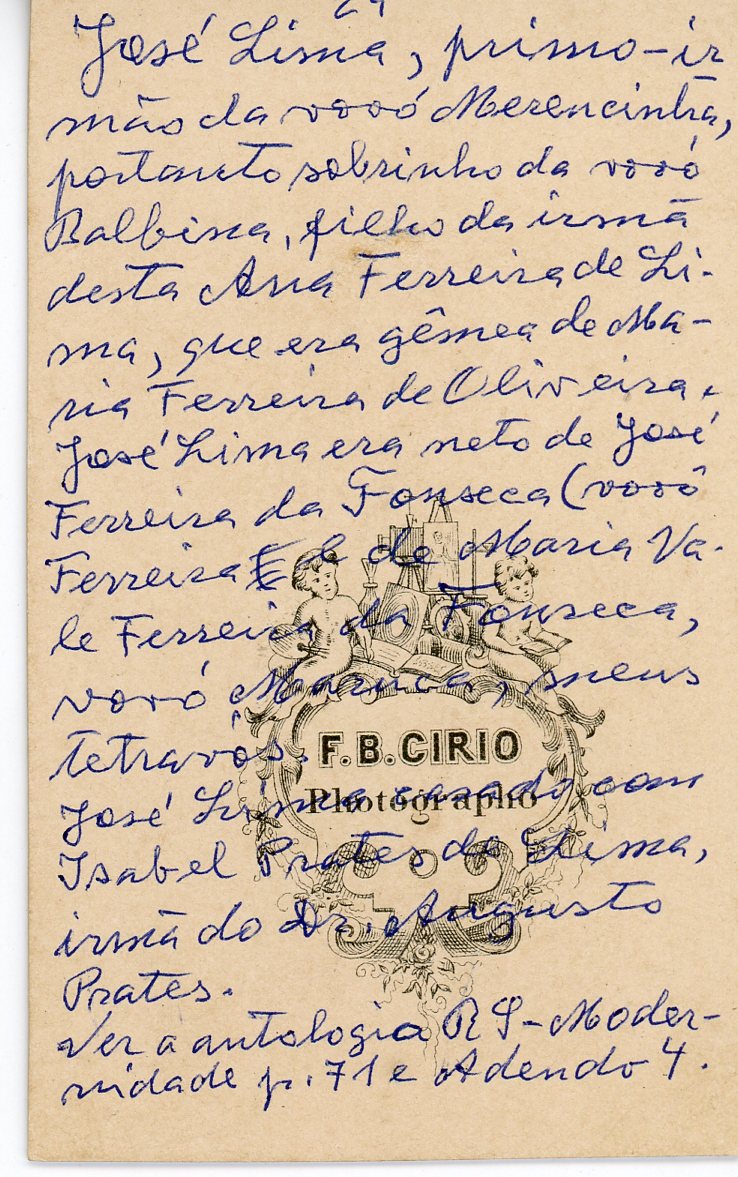 José Lima, primo-ir
mão da vovó Merencinha,
portanto sobrinho da vovó
Balbina, filho da irmã
desta Ana Ferreira de Li-
ma, que era gêmea de Ma-
ria Ferreira de Oliveira.
José Lima era neto de José
Ferreira da Fonseca (vovô
Ferreira) e de Maria Va-
le Ferreira da Fonseca,
vovó Maruca, meus
tetravós.
F.B.CIRIO
Photographo
José Lima casado com
Isabel Prates de Lima,
irmã do Dr. Augusto
Prates.
Ver a antologia RS-Moder-
nidade p. 71 e Adendo 4.